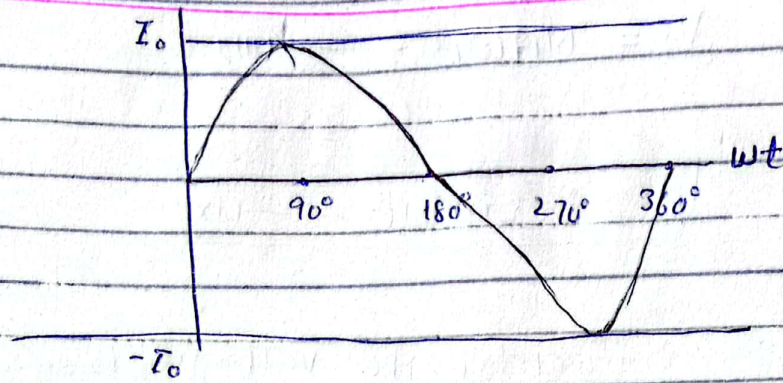 I₀
ωt
90° 180° 270° 360°
-I₀